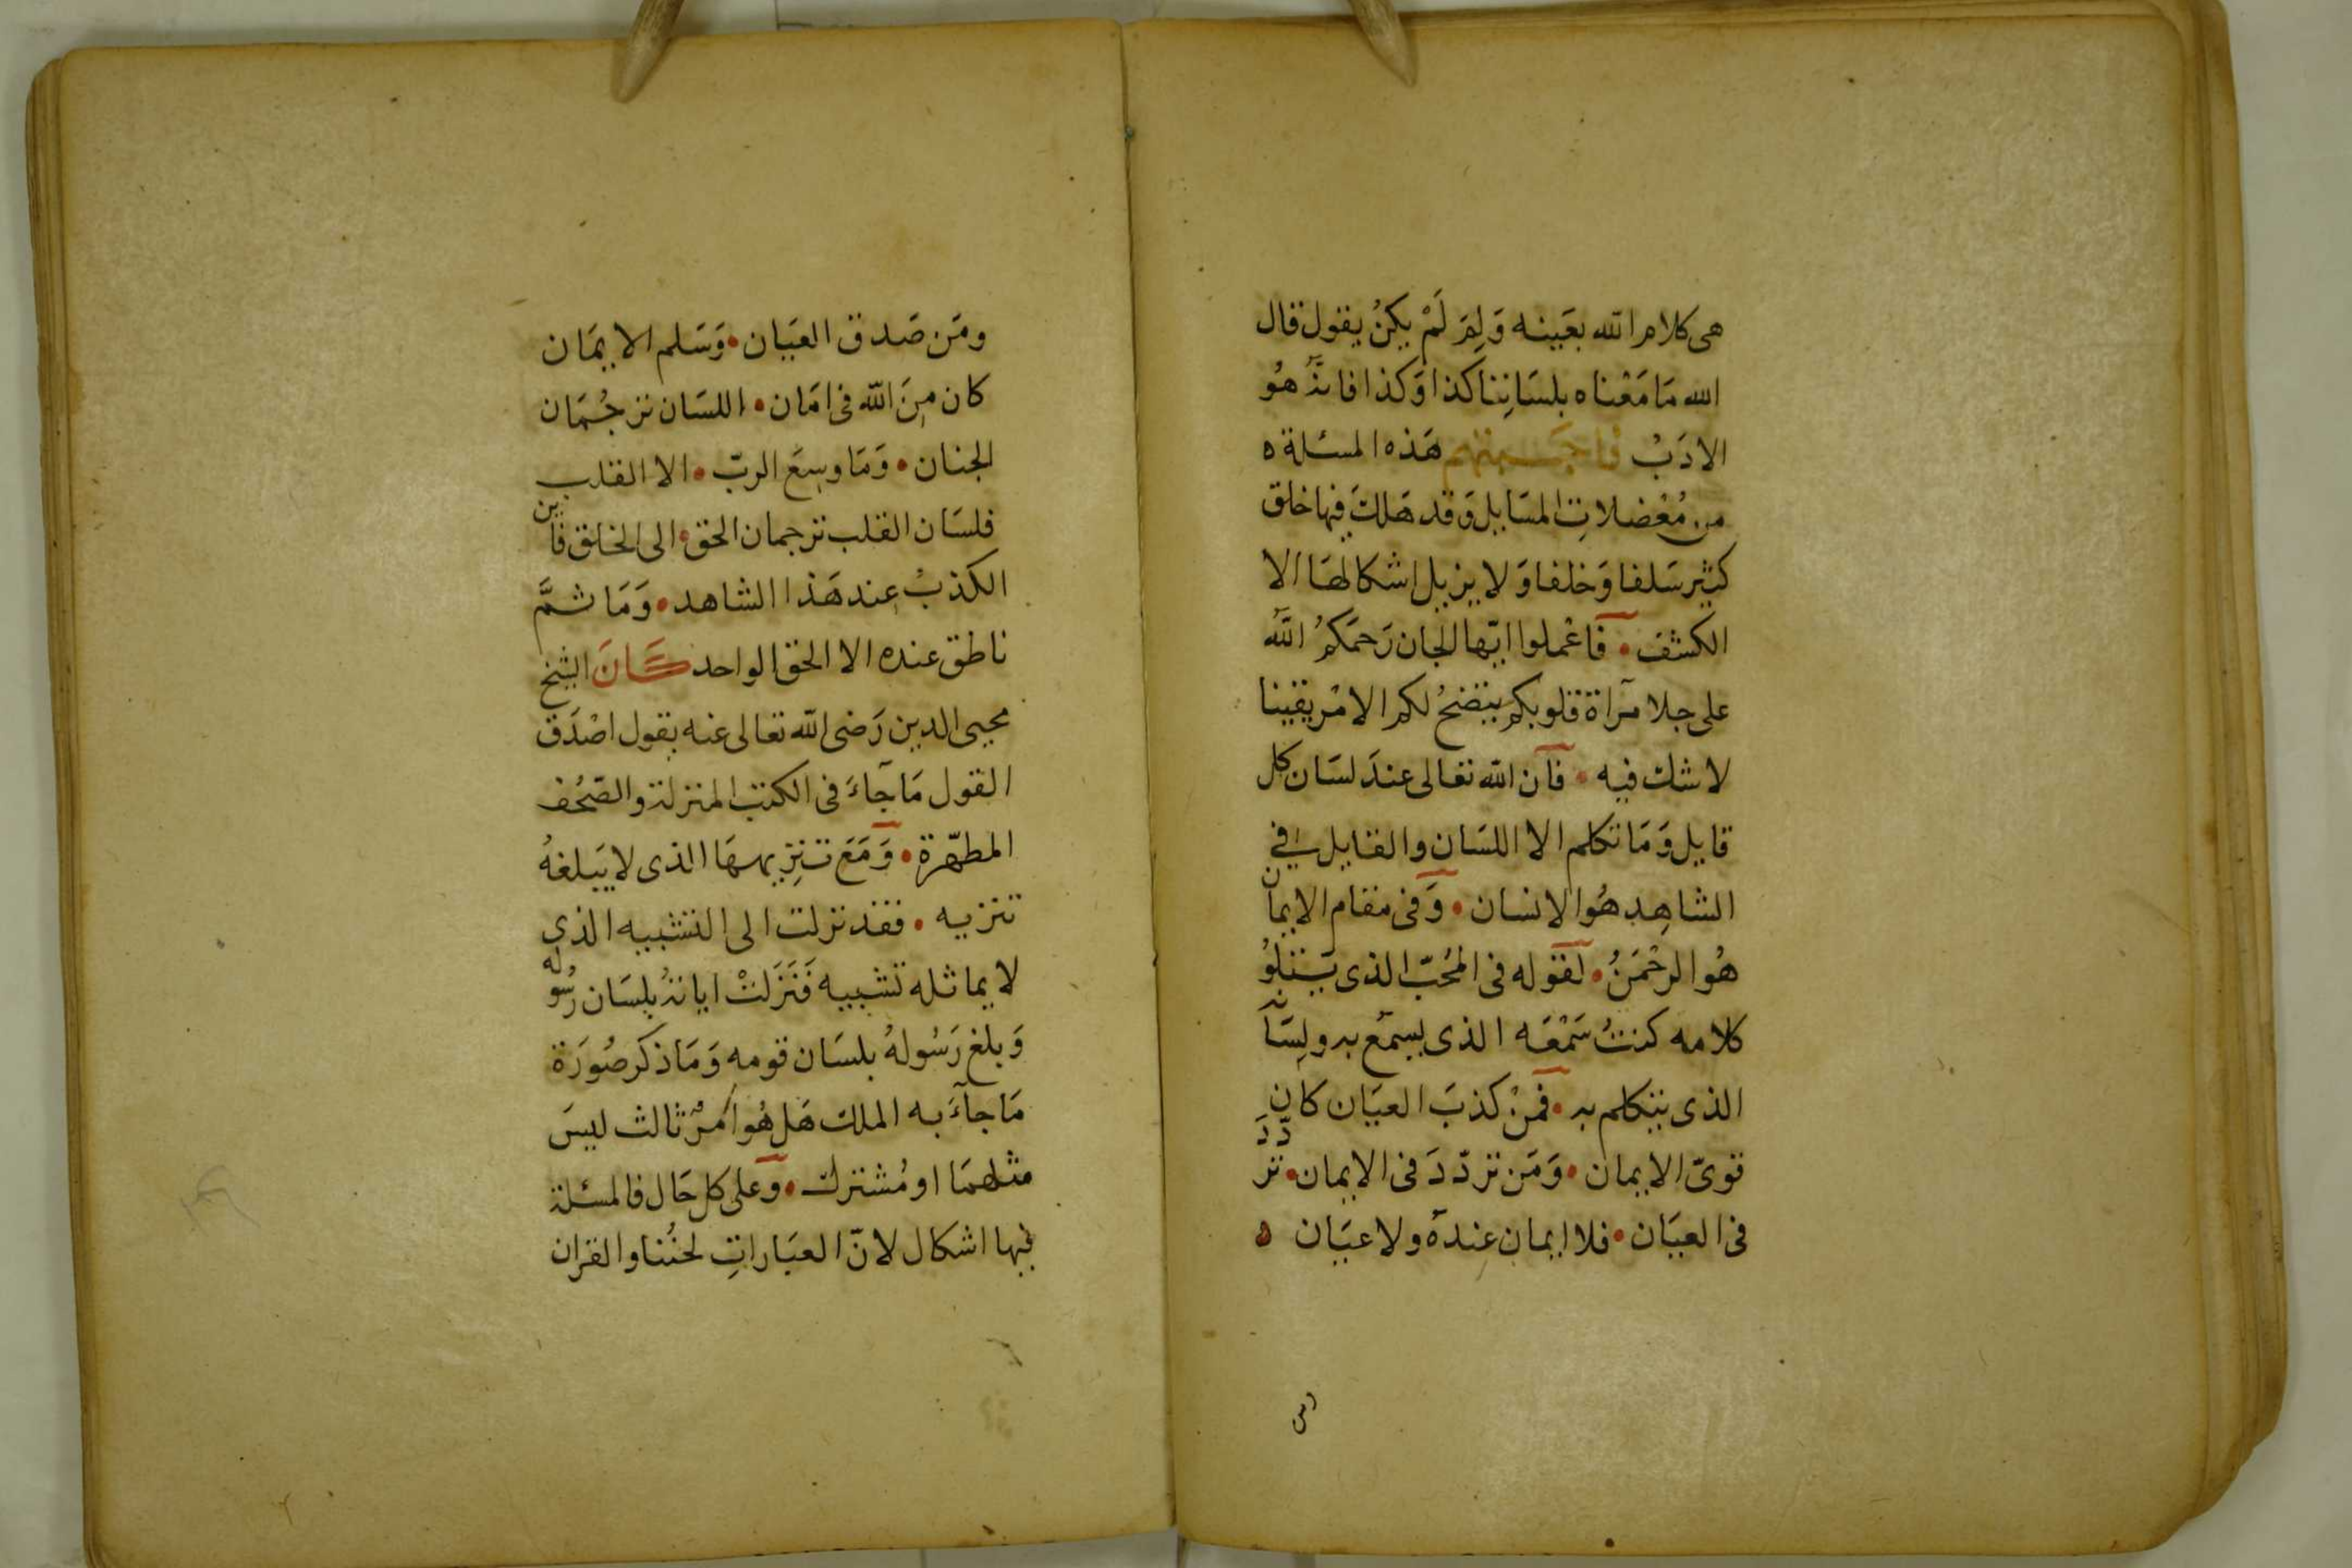 هى كلام الله بعَينه وَلِمَ لَمْ يكنُ يقول قال
الله مَا مَعْناه بلسَانِنا كذا وَكذا فانّهُ هُو
الادَبْ هَذه المسئلة ه
من مُعْضلاتِ المسَايل وَقد هَلكَ فيها خلق
كثير سَلفا وَخلفا وَلا يزيل اشكالهَا الا
الكشف • فاعْملوا ايّها الجان رَحمَكمُ اللهُ
على جلا مرآة قلوبكم يتضحُ لكم الامْر يقينا
لا شك فيه • فان الله تعالى عندَ لسَان كل
قايل وَمَا تكلم الا اللسَان والقايل في
الشاهِد هُو الانسان • وَفى مقام الايمان
هُو الرحْمَنُ • لقوله فى المُحبّ الذى يَتلوُ
كلامه كنتُ سَمْعَه الذى يسمَع به ولِسَانه
الذى يتكلم به • فمَنْ كذبَ العيَان كان
قوىّ الايمان • وَمَن تردّدَ فى الايمان • تردّدَ
فى العيَان • فلا ايمان عِندهُ ولا عيَان ه
ومَن صَدق العيَان • وَسَلم الايمَان
كان مِنَ الله فى امَان • اللسَان ترجُمَان
الجنان • وَمَا وسِعَ الربّ • الا القلب
فلسَان القلب ترجمان الحق • الى الخلق فاين
الكذبُ عِند هَذا الشاهد • وَمَا ثمَّ
ناطق عنده الا الحق الواحد كَانَ الشيخ
محيى الدين رَضى الله تعالى عنه يقول اصْدَق
القول مَا جَآءَ فى الكتب المنزلة والصّحُف
المطهّرة • وَمَعَ تنزِيههَا الذى لا يَبلغهُ
تنزيه • فقد نزلت الى التشبيه الذى
لا يماثله تشبيه فَنَزَلتْ اياتهُ بلسَان رسُوله
وَبلغ رَسُولهُ بلسَان قومه وَمَا ذكر صُورَة
مَا جآءَ به الملك هَل هُو امْرٌ ثالث ليسَ
مثلهمَا او مُشترك • وَعلى كل حَال فالمسئلة
فيها اشكال لانّ العبَاراتِ لحنُنا والقران